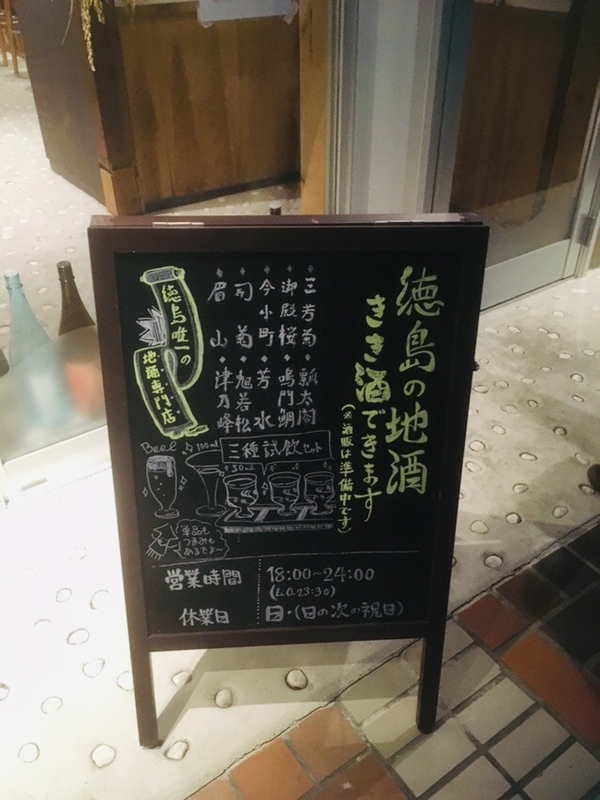 徳島の地酒
きき酒できます
(※酒販は準備中です)
三芳菊 瓢太閤
御殿桜 鳴門鯛
今小町 芳水
司菊 旭若松
眉山 津乃峰
徳島唯一の
地酒専門店
三種試飲セット
Beer
100ml
50ml
単品も
つまみも
あるでよ〜
営業時間 18:00~24:00
(L.O.23:30)
休業日 日・(日の次の祝日)